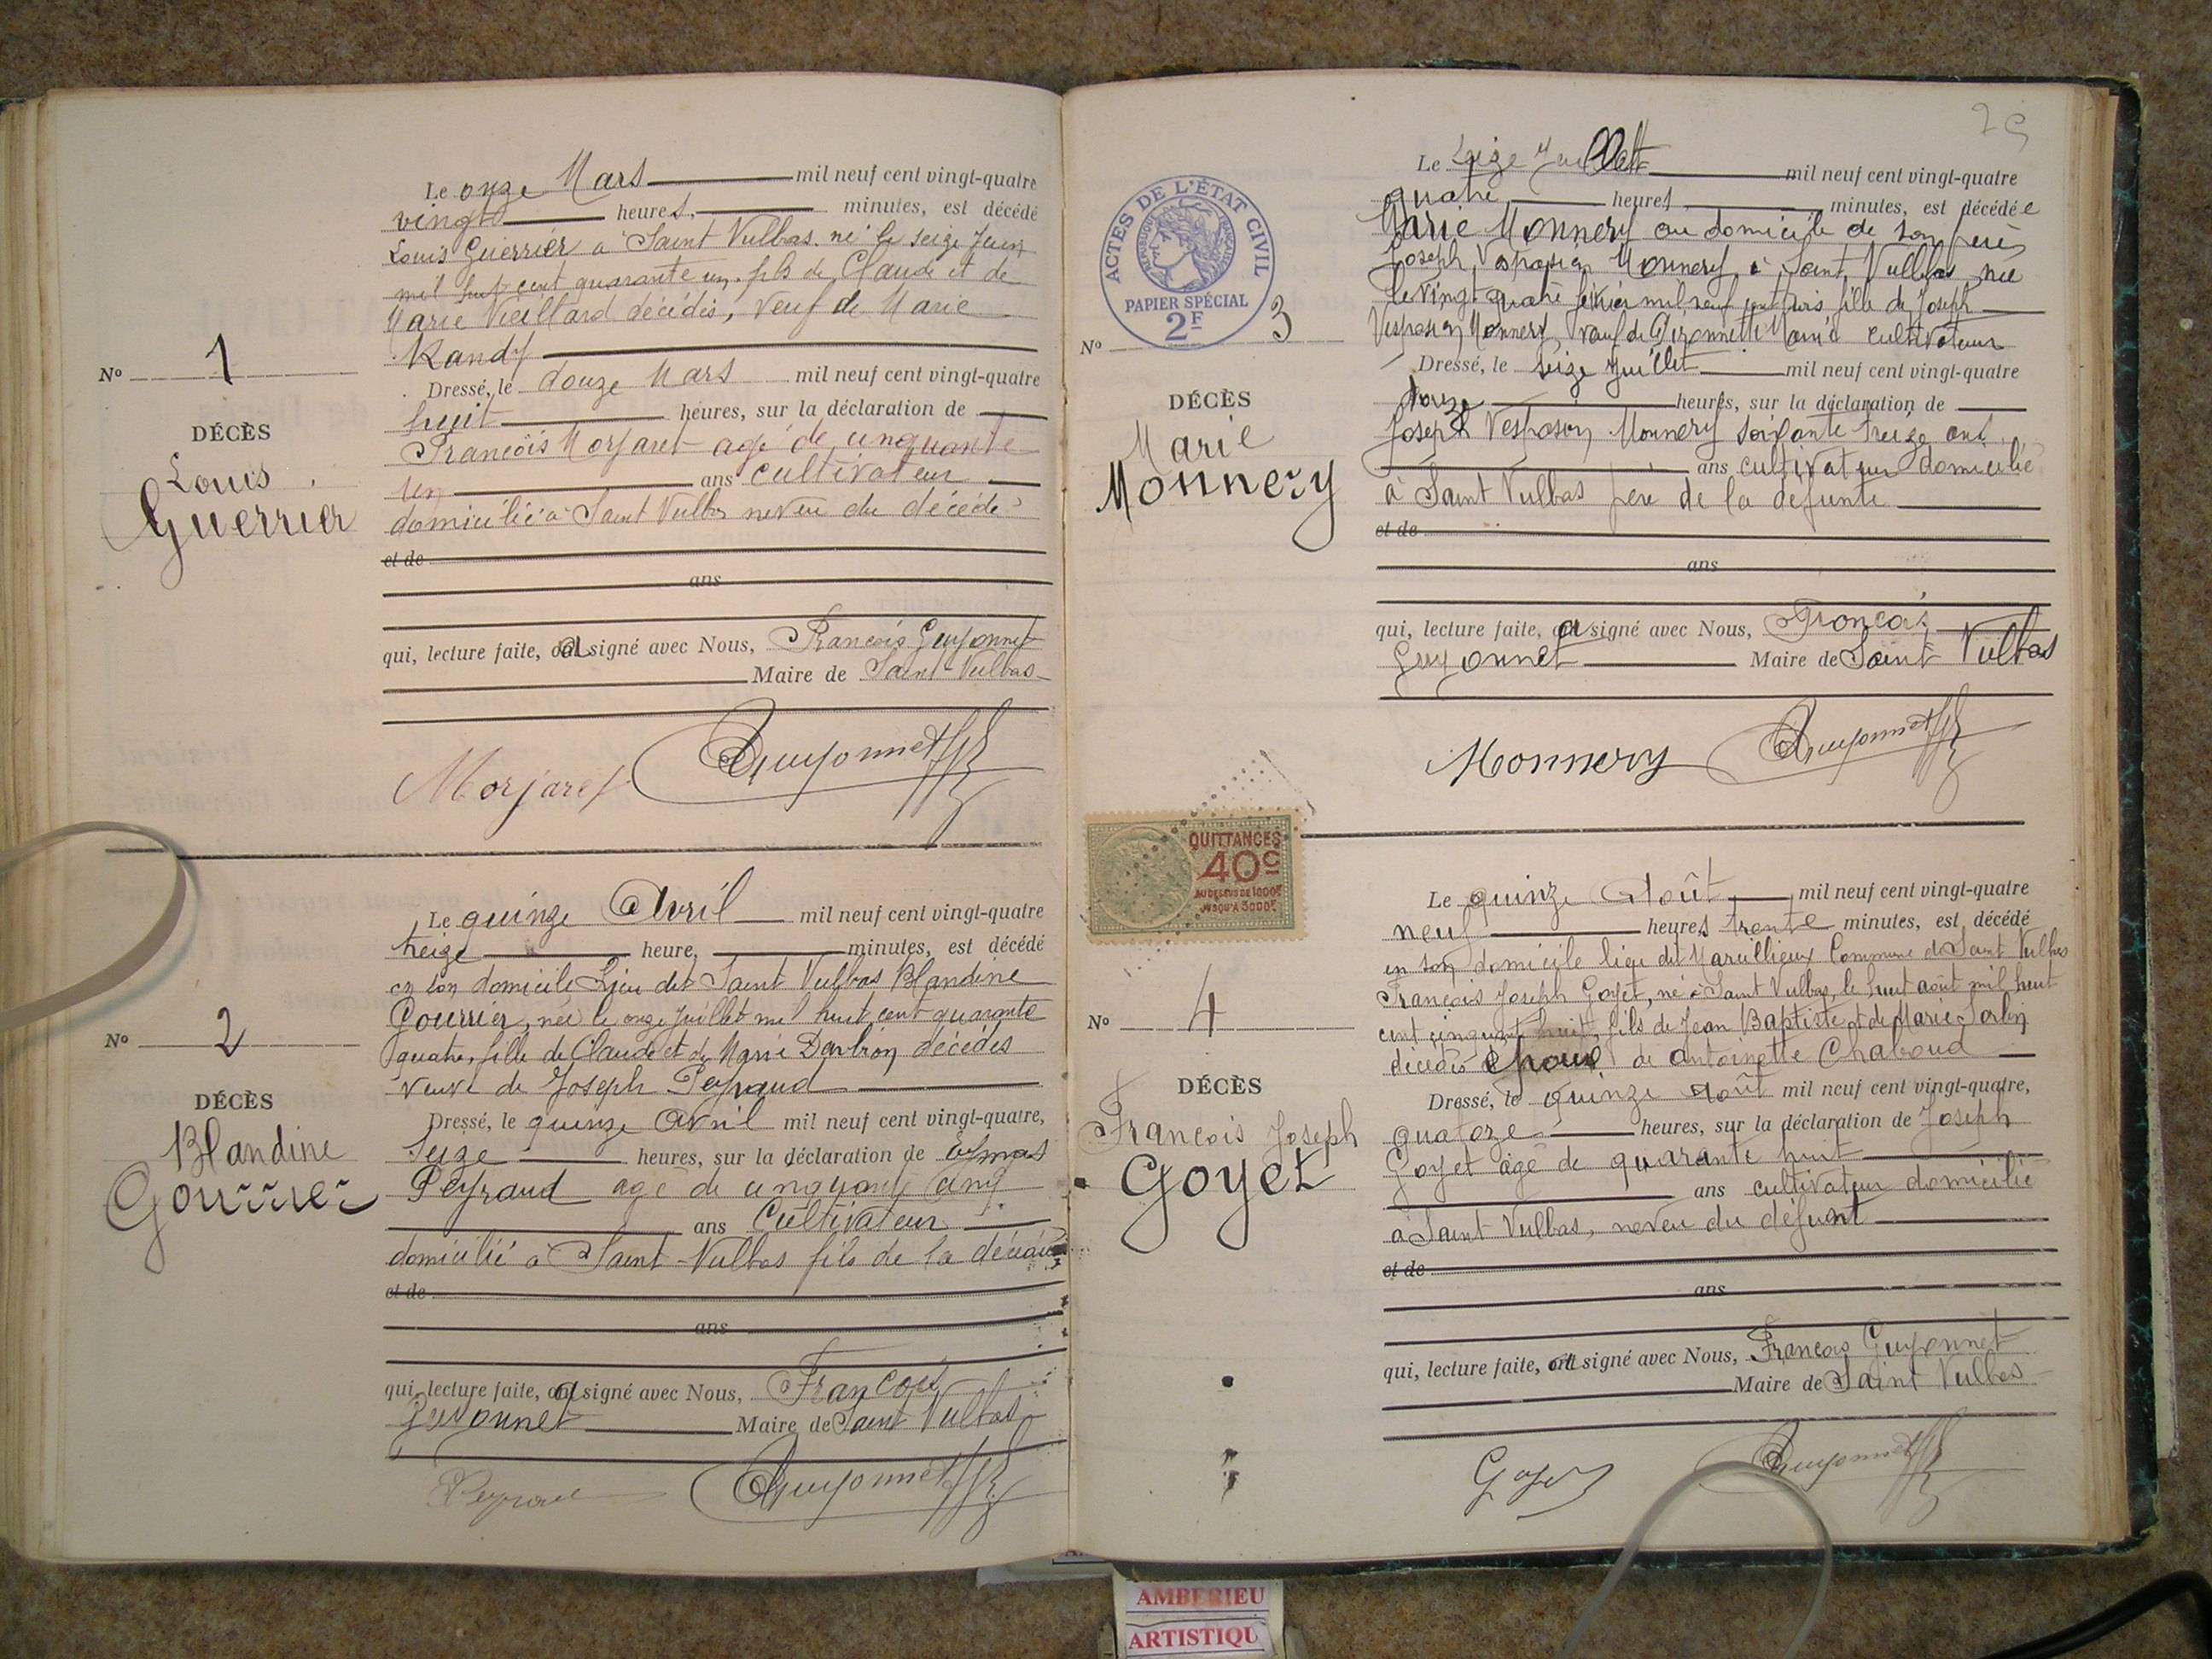 Le onze Mars mil neuf cent vingt-quatre
vingt heures, minutes, est décédé
Louis Guerrier à Saint Vulbas né le seize Juin
mil huit cent quarante un, fils de Claude et de
Marie Vieillard décédés, veuf de Marie
Randy
No 1
Dressé, le douze Mars mil neuf cent vingt-quatre
huit heures, sur la déclaration de
DÉCÈS
Louis
Guerrier
François Morjaret agé de cinquante
un ans cultivateur
domicilié à Saint Vulbas neveu du décédé
et de
ans
qui, lecture faite, a signé avec Nous, François Guyonnet
Maire de Saint-Vulbas
Morjaret Guyonnet
Le quinze Avril mil neuf cent vingt-quatre
treize heure, minutes, est décédé
en son domicile Lieu dit Saint Vulbas Blandine
Gourrier, née le onze Juillet mil huit cent quarante
quatre, fille de Claude et de Marie décédés
veuve de Joseph Peyraud
No 2
DÉCÈS
Blandine
Gourrier
Dressé, le quinze Avril mil neuf cent vingt-quatre,
seize heures, sur la déclaration de
Peyraud agé de cinquante cinq
ans Cultivateur
domicilié à Saint-Vulbas fils de la décédée
et de
ans
qui, lecture faite, a signé avec Nous, François
Guyonnet Maire de Saint Vulbas
Peyraud Guyonnet
25
ACTES DE L'ÉTAT CIVIL
RÉPUBLIQUE FRANÇAISE
PAPIER SPÉCIAL
2F
Le seize Juillet mil neuf cent vingt-quatre
quatre heures minutes, est décédée
Marie Monnery au domicile de son père
Joseph Vespasien Monnery, à Saint Vulbas née
le vingt quatre février mil neuf cent trois fille de Joseph
Vespasien Monnery, veuf de Marie cultivateur
No 3
DÉCÈS
Marie
Monnery
Dressé, le seize Juillet mil neuf cent vingt-quatre
heures, sur la déclaration de
Joseph Vespasien Monnery soixante treize ans
ans cultivateur domicilié
à Saint Vulbas père de la défunte
et de
ans
qui, lecture faite, a signé avec Nous, François
Guyonnet Maire de Saint Vulbas
Monnery Guyonnet
QUITTANCES
40c
AU DESSUS DE 1000F
JUSQU'A 3000F
Le quinze Août mil neuf cent vingt-quatre
neuf heures trente minutes, est décédé
en son domicile lieu dit Marcillieux Commune de Saint Vulbas
François Joseph Goyet, né à Saint Vulbas, le huit août mil huit
cent cinquante huit, fils de Jean Baptiste et de Marie
décédés époux de Antoinette Chaboud
No 4
DÉCÈS
François Joseph
Goyet
Dressé, le quinze août mil neuf cent vingt-quatre,
quatorze heures, sur la déclaration de Joseph
Goyet agé de quarante huit
ans cultivateur domicilié
à Saint Vulbas, neveu du défunt
et de
ans
qui, lecture faite, a signé avec Nous, François Guyonnet
Maire de Saint Vulbas
Goyet Guyonnet
AMBERIEU
ARTISTIQU